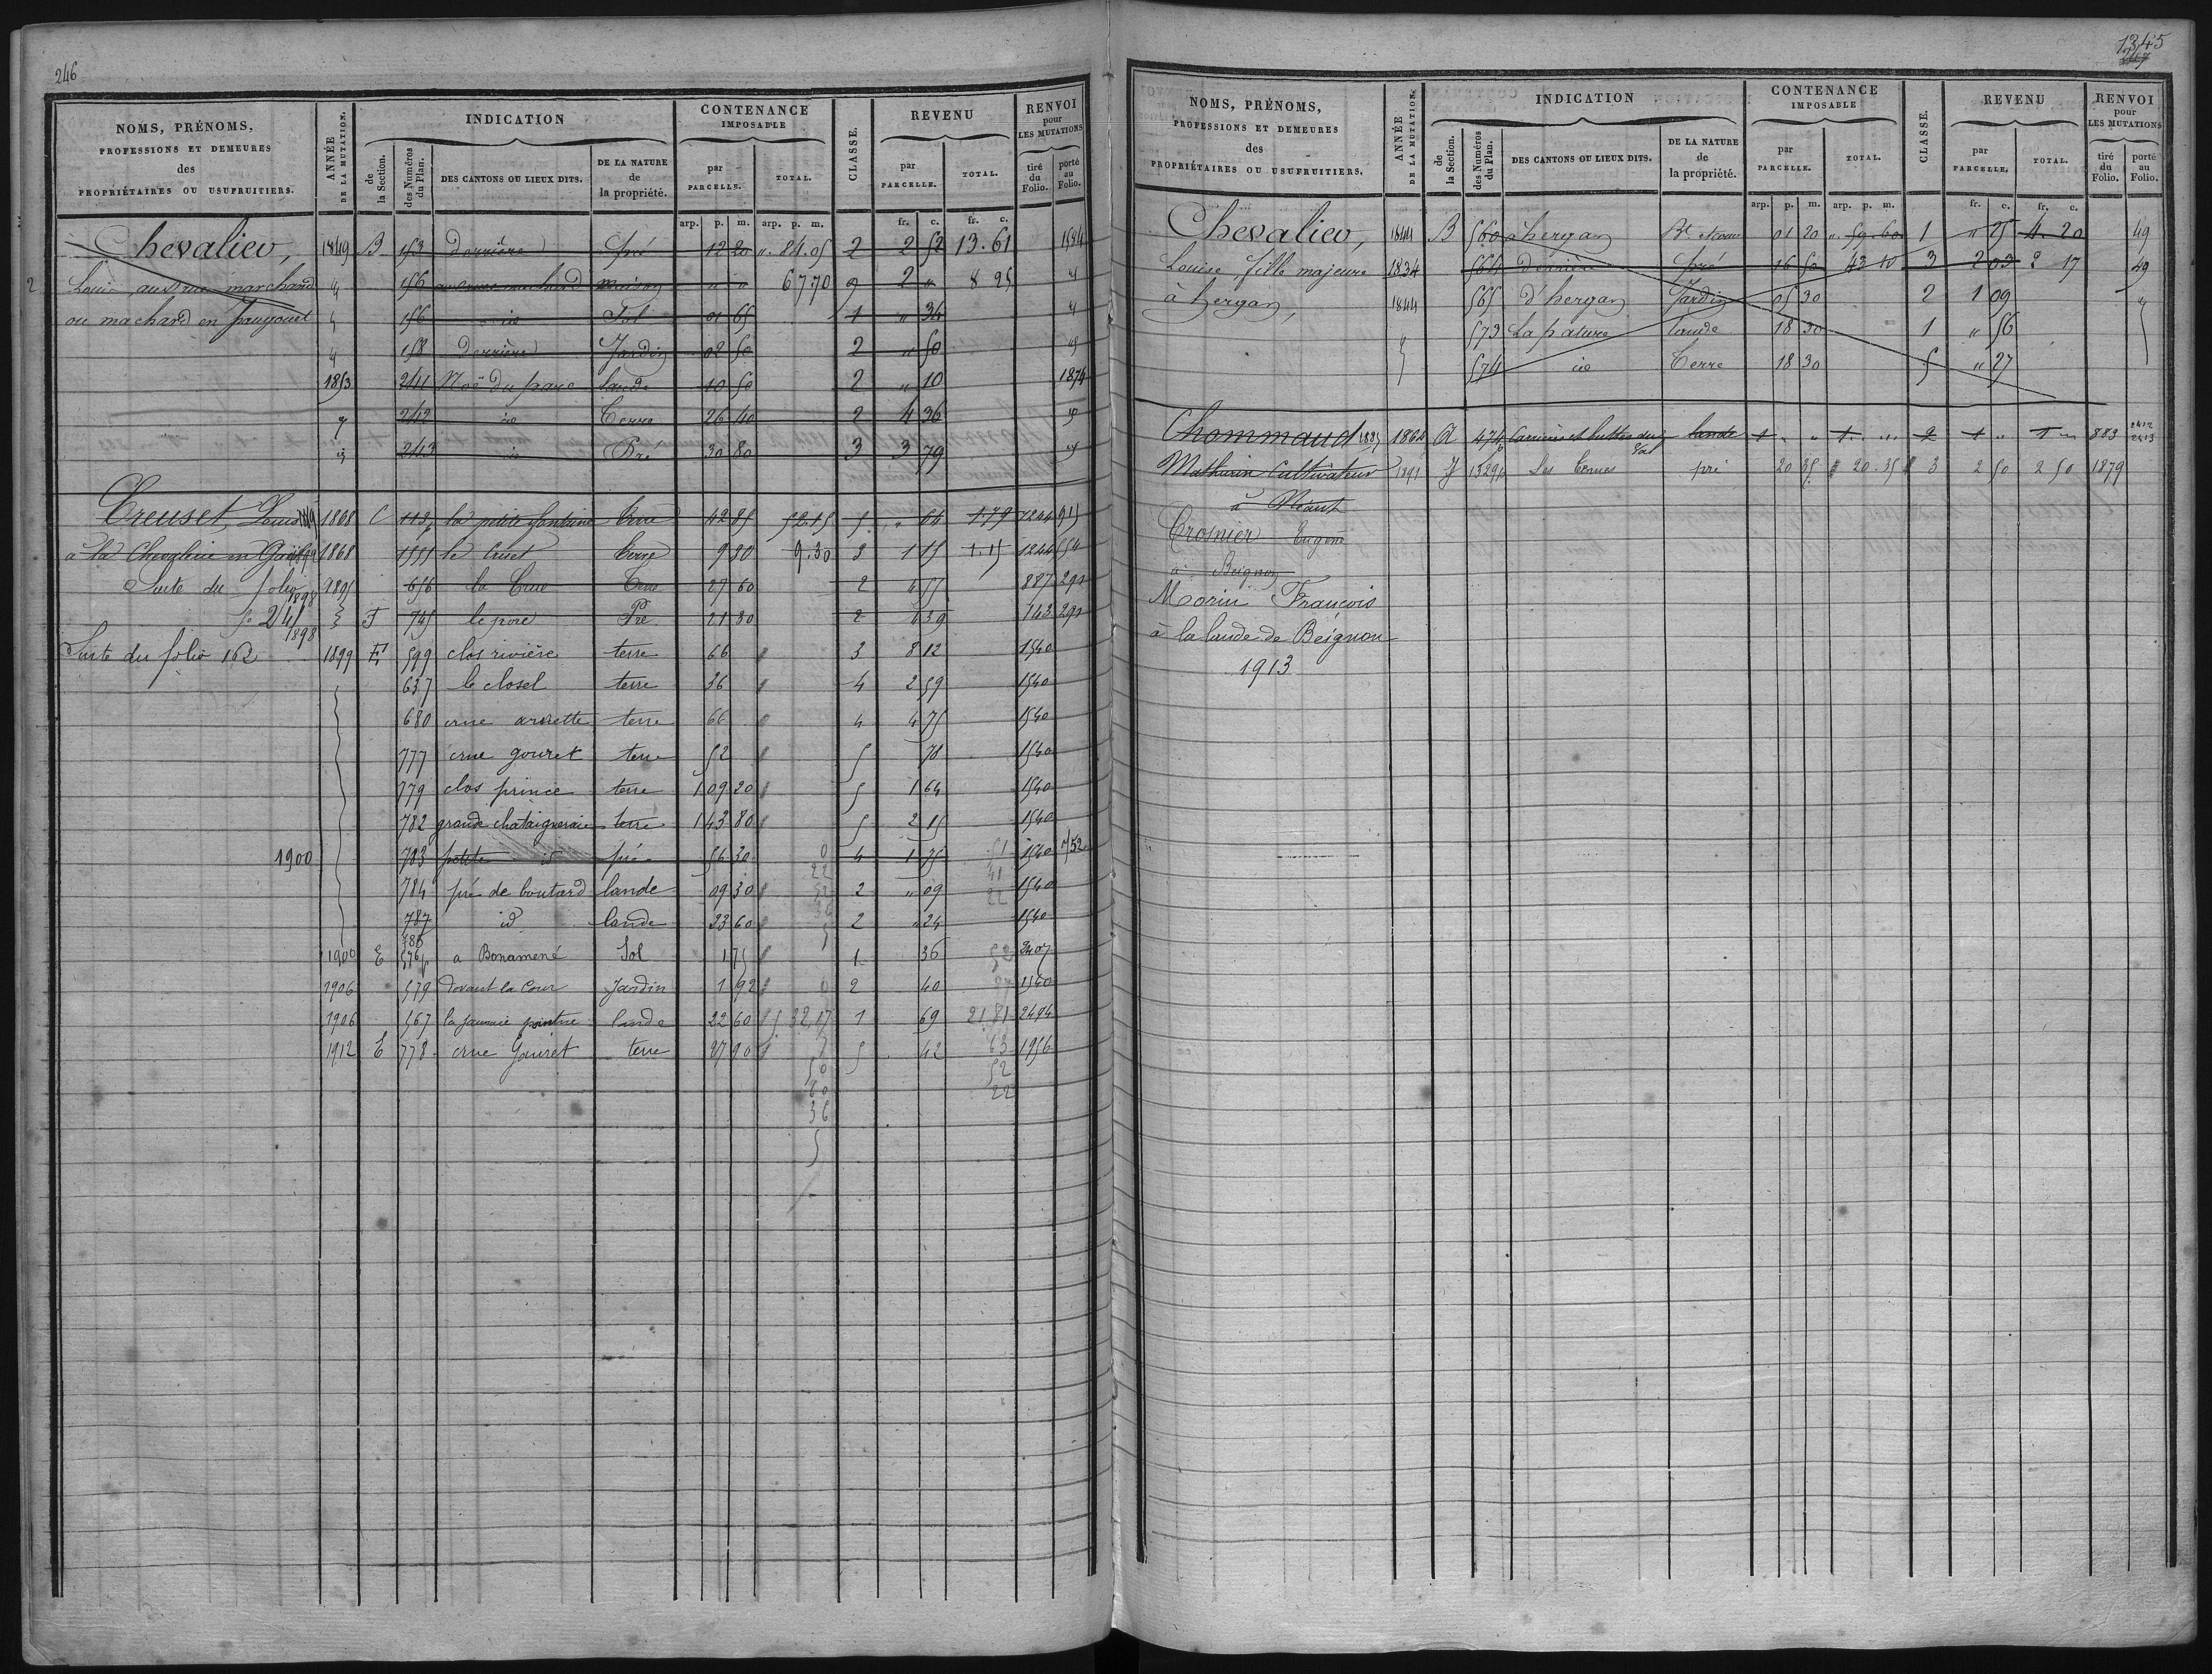 246
NOMS, PRÉNOMS, PROFESSIONS ET DEMEURES des PROPRIÉTAIRES OU USUFRUITIERS.
ANNÉE DE LA MUTATION.
INDICATION
de la Section.
des Numéros du Plan.
DES CANTONS OU LIEUX DITS.
DE LA NATURE de la propriété.
CONTENANCE IMPOSABLE
par PARCELLE.
TOTAL.
CLASSE.
REVENU
par PARCELLE.
TOTAL.
RENVOI pour LES MUTATIONS
tiré du Folio.
porté au Folio.
arp. p. m. arp. p. m. fr. c. fr. c.
Chevalier, 1849 B 153 Derrière pré 12 20 " 84.05 2 2 52 13.61 1584
2 Louis, aux rue marchand 156 maison " " 67 70 9 2 " 8 25
ou machard en paugouet 156 id Sol 01 65 1 " 34
158 Derrière Jardin 02 50 2 " 50
1853 241 Noë du parc lande 10 50 2 " 10 1874
242 id Terre 26 40 2 4 36
243 id Pré 30 80 3 3 79
Creuset, Louis 1868 C 113 la petite fontaine terre 42 85 52.15 5 " 64 1.79 1244 915
à la Chevalerie en 1868 1551 le Cruet terre 9 30 9.30 3 1 15 1.15 1244 554
Suite du folio 1898 1895 656 la Crue terre 27 60 2 4 55 887 291
fo 241 1898 F 745 le poré Pré 21 30 2 143 291
Suite du folio 162 1899 E 599 clos rivière terre 66 " 3 8 12 1540
637 le closel terre 36 " 4 2 59 1540
680 crue arsette terre 66 " 4 4 75 1540
777 crue gouret terre 52 5 78 1540
779 clos prince terre 1 09 20 5 1 64 1540
782 grande chataigneraie terre 1 43 80 5 2 15 1540
1900 783 petite id pré 56 30 4 1 75 1540 752
784 pré de boutard lande 09 30 2 " 09 1540
787 id lande 23 60 2 " 24 1540
786
1900 E 576 a Bonamené Sol 1 75 1 36 2407
1906 579 Devant la Cour Jardin 1 92 2 40 1540
1906 567 la jaunaie pointue lande 22 60 5 32,17 1 69 21 81 2494
1912 E 778 crue Gouret terre 27 90 5 42 1956
1345
247
NOMS, PRÉNOMS, PROFESSIONS ET DEMEURES des PROPRIÉTAIRES OU USUFRUITIERS.
ANNÉE DE LA MUTATION.
INDICATION
de la Section.
des Numéros du Plan.
DES CANTONS OU LIEUX DITS.
DE LA NATURE de la propriété.
CONTENANCE IMPOSABLE
par PARCELLE.
TOTAL.
CLASSE.
REVENU
par PARCELLE.
TOTAL.
RENVOI pour LES MUTATIONS
tiré du Folio.
porté au Folio.
arp. p. m. arp. p. m. fr. c. fr. c.
Chevalier, 1844 B 560 à hergan Bt 01 20 " 59.60 1 " 25 4 20 49
Louise, fille majeure 1834 564 Derrière pré 16 50 43 10 3 2 03 2 17 49
à hergan, 1844 565 d'hergan Jardin 05 30 2 1 09
573 La pature lande 18 30 1 " 56
574 id Terre 18 30 5 " 27
Chommaud 1864 A 474 Carrières et buttes du Val lande 1 " " 1 " " 2 1 " 1 " 883 2412 2413
Mathurin Cultivateur 1891 J 1329 Les Ternes pré 20 35 20.35 3 2 50 2 50 1879
à Néant
Crosnier Eugène
à Beignon
Morin François
à la lande de Beignon
1913